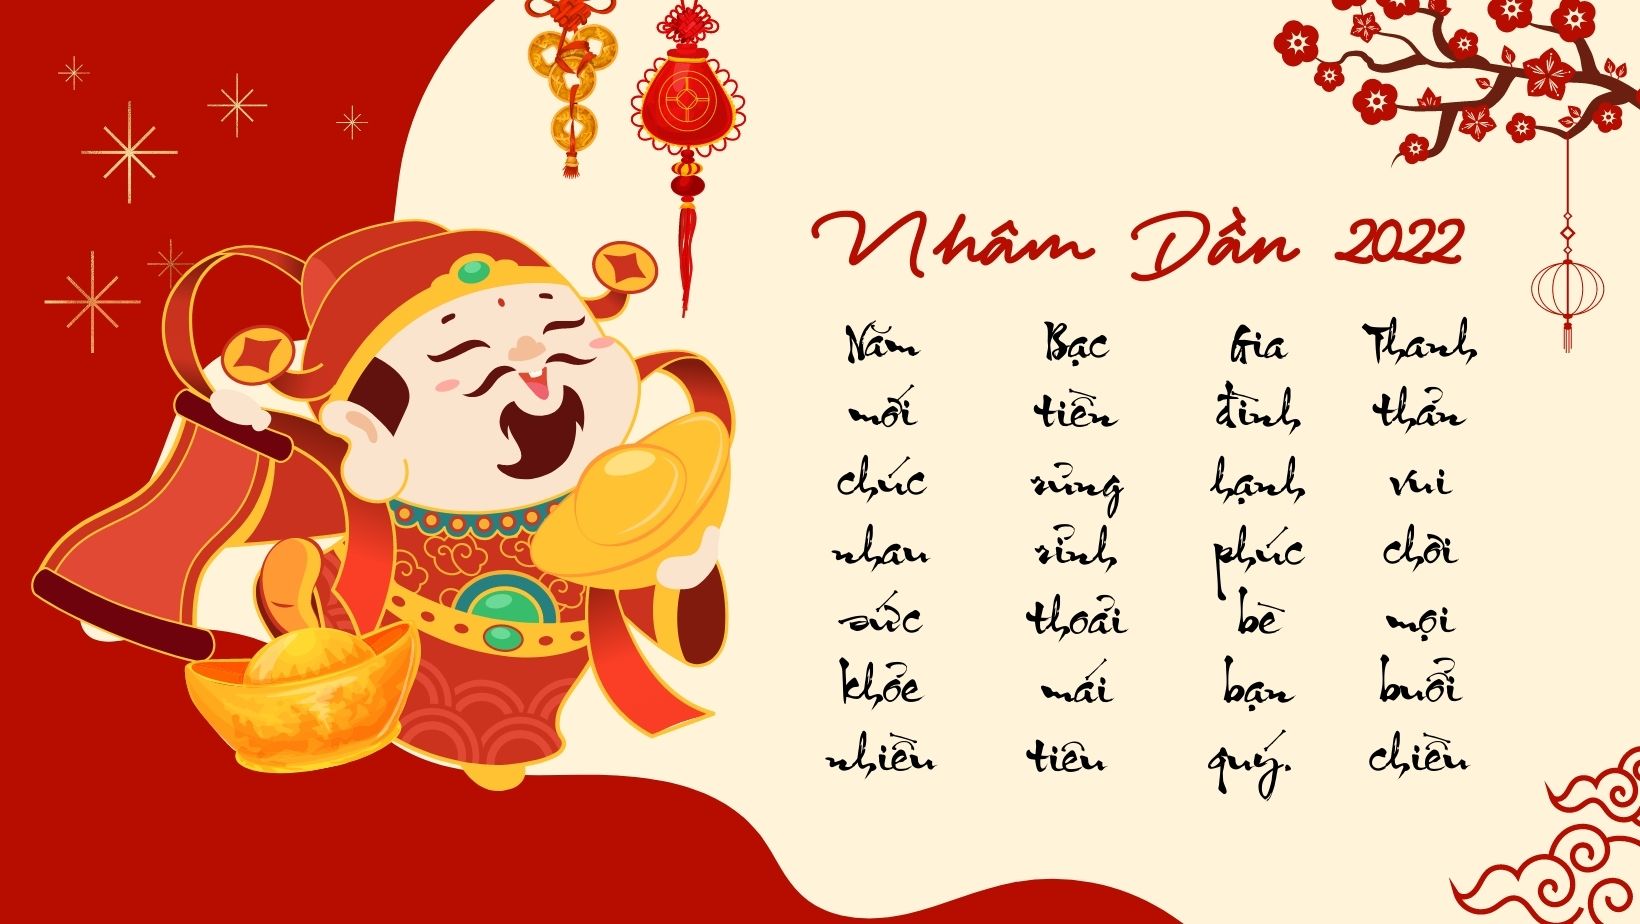 Nhâm Dần 2022
Năm mới chúc nhau sức khỏe nhiều
Bạc tiền rủng rỉnh thoải mái tiêu
Gia đình hạnh phúc bè bạn quý.
Thanh thản vui chơi mọi buổi chiều